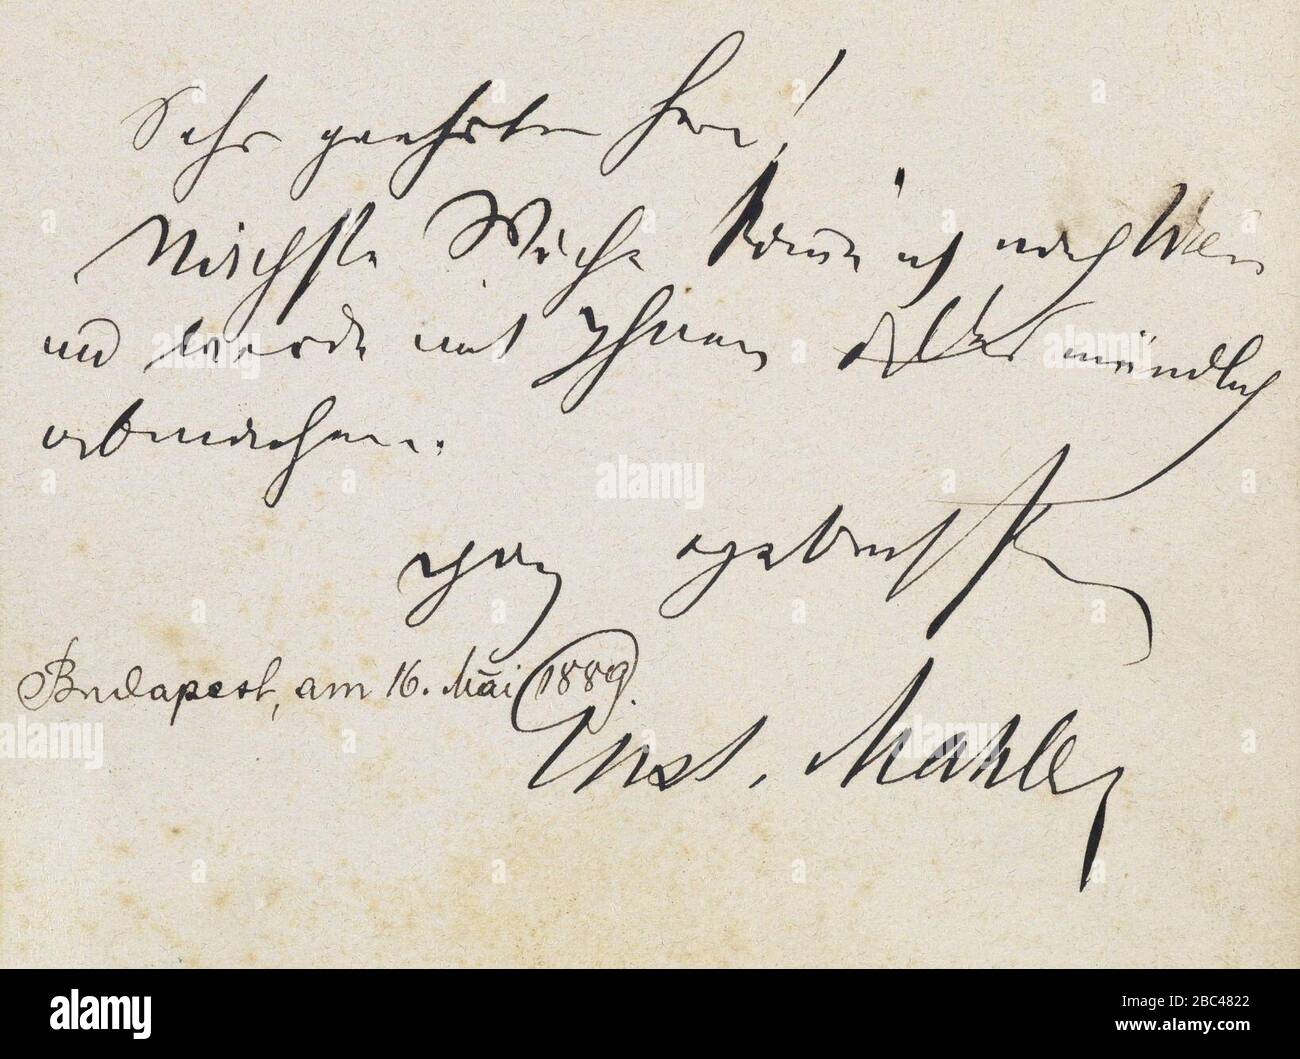 Sehr geehrter Herr!
Nächste Woche komme ich nach Wien
und werde mit Ihnen alles mündlich
abmachen.
Ganz ergebenst
Budapest, am 16. Mai 1889.
Gust. Mahler
alamy
Image ID: 2BC4822
www.alamy.com